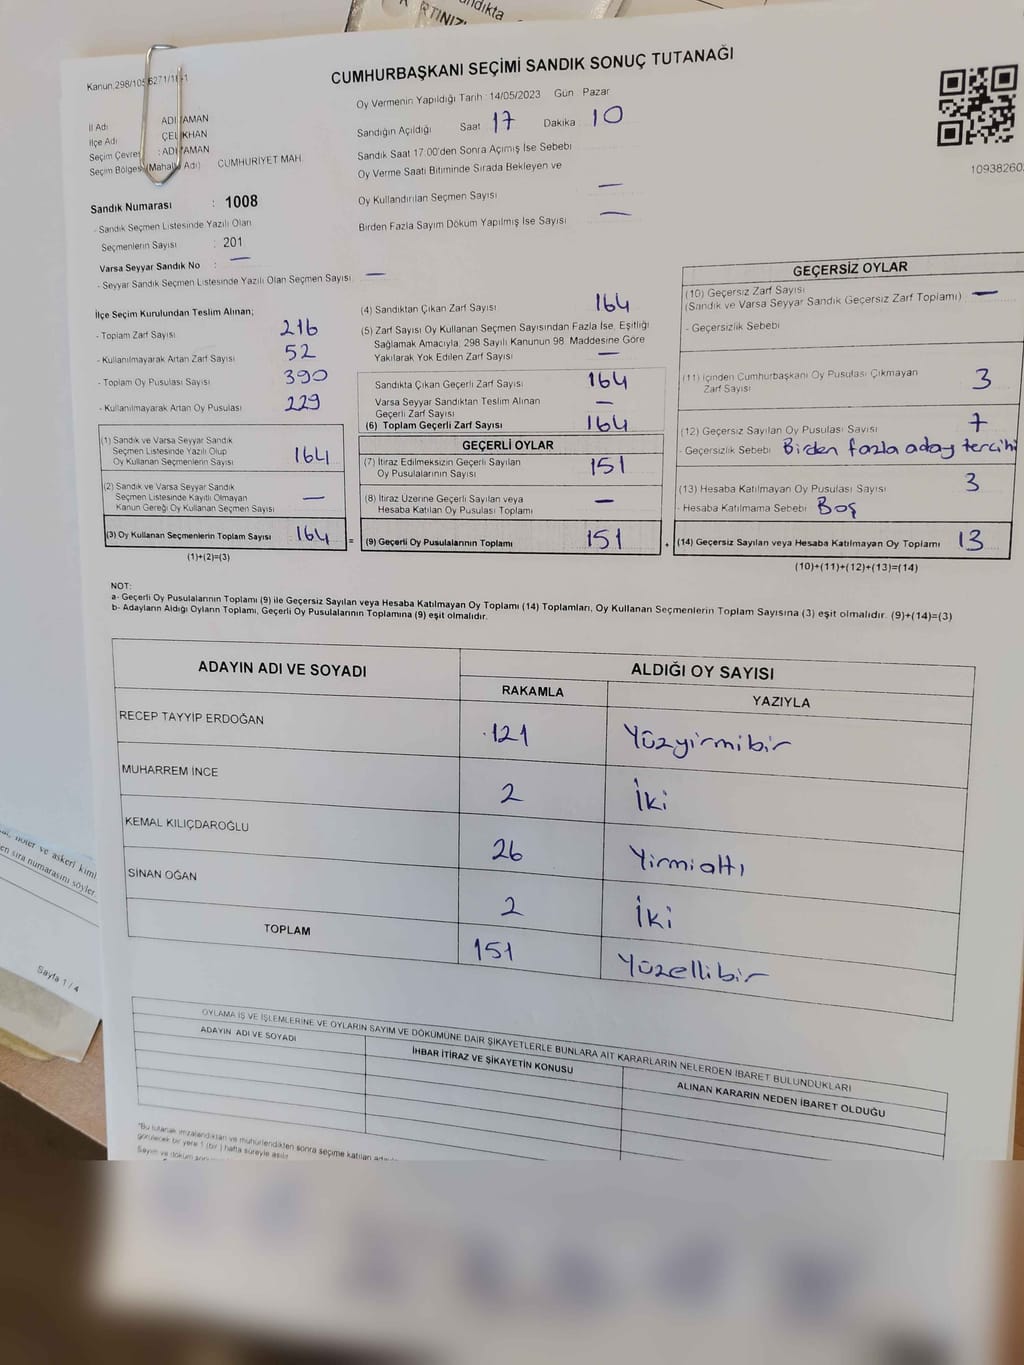 CUMHURBAŞKANI SEÇİMİ SANDIK SONUÇ TUTANAĞI
Oy Vermenin Yapıldığı Tarih : 14/05/2023 Gün Pazar
İl Adı
İlçe Adı
Seçim Çevresi : ADIYAMAN
Seçim Bölgesi (Mahalle Adı) CUMHURİYET MAH.
Sandığın Açıldığı Saat 17 Dakika 10
Sandık Saat 17:00'den Sonra Açımış İse Sebebi
Oy Verme Saati Bitiminde Sırada Bekleyen ve
Oy Kullandırılan Seçmen Sayısı —
Birden Fazla Sayım Döküm Yapılmış İse Sayısı —
10938260
Sandık Numarası : 1008
- Sandık Seçmen Listesinde Yazılı Olan
Seçmenlerin Sayısı : 201
Varsa Seyyar Sandık No : —
- Seyyar Sandık Seçmen Listesinde Yazılı Olan Seçmen Sayısı —
İlçe Seçim Kurulundan Teslim Alınan;
- Toplam Zarf Sayısı 216
- Kullanılmayarak Artan Zarf Sayısı 52
- Toplam Oy Pusulası Sayısı 390
- Kullanılmayarak Artan Oy Pusulası 229
(1) Sandık ve Varsa Seyyar Sandık
Seçmen Listesinde Yazılı Olup
Oy Kullanan Seçmenlerin Sayısı 164
(2) Sandık ve Varsa Seyyar Sandık
Seçmen Listesinde Kayıtlı Olmayan
Kanun Gereği Oy Kullanan Seçmen Sayısı —
(3) Oy Kullanan Seçmenlerin Toplam Sayısı : 164 =
(1)+(2)=(3)
(4) Sandıktan Çıkan Zarf Sayısı 164
(5) Zarf Sayısı Oy Kullanan Seçmen Sayısından Fazla İse, Eşitliği
Sağlamak Amacıyla, 298 Sayılı Kanunun 98. Maddesine Göre
Yakılarak Yok Edilen Zarf Sayısı —
Sandıkta Çıkan Geçerli Zarf Sayısı 164
Varsa Seyyar Sandıktan Teslim Alınan
Geçerli Zarf Sayısı —
(6) Toplam Geçerli Zarf Sayısı 164
GEÇERLİ OYLAR
(7) İtiraz Edilmeksizin Geçerli Sayılan
Oy Pusulalarının Sayısı 151
(8) İtiraz Üzerine Geçerli Sayılan veya
Hesaba Katılan Oy Pusulası Toplamı —
(9) Geçerli Oy Pusulalarının Toplamı 151 +
GEÇERSİZ OYLAR
(10) Geçersiz Zarf Sayısı
(Sandık ve Varsa Seyyar Sandık Geçersiz Zarf Toplamı) —
- Geçersizlik Sebebi
(11) İçinden Cumhurbaşkanı Oy Pusulası Çıkmayan
Zarf Sayısı 3
(12) Geçersiz Sayılan Oy Pusulası Sayısı 7
- Geçersizlik Sebebi Birden fazla aday tercihi
(13) Hesaba Katılmayan Oy Pusulası Sayısı 3
- Hesaba Katılmama Sebebi Boş
(14) Geçersiz Sayılan veya Hesaba Katılmayan Oy Toplamı 13
(10)+(11)+(12)+(13)=(14)
NOT:
a- Geçerli Oy Pusulalarının Toplamı (9) ile Geçersiz Sayılan veya Hesaba Katılmayan Oy Toplamı (14) Toplamları, Oy Kullanan Seçmenlerin Toplam Sayısına (3) eşit olmalıdır. (9)+(14)=(3)
b- Adayların Aldığı Oyların Toplamı, Geçerli Oy Pusulalarının Toplamına (9) eşit olmalıdır.
ADAYIN ADI VE SOYADI ALDIĞI OY SAYISI
RAKAMLA YAZIYLA
RECEP TAYYİP ERDOĞAN 121 Yüzyirmibir
MUHARREM İNCE 2 İki
KEMAL KILIÇDAROĞLU 26 Yirmialtı
SİNAN OĞAN 2 İki
TOPLAM 151 Yüzellibir
OYLAMA İŞ VE İŞLEMLERİNE VE OYLARIN SAYIM VE DÖKÜMÜNE DAİR ŞİKAYETLERLE BUNLARA AİT KARARLARIN NELERDEN İBARET BULUNDUKLARI
ADAYIN ADI VE SOYADI İHBAR İTİRAZ VE ŞİKAYETİN KONUSU ALINAN KARARIN NEDEN İBARET OLDUĞU
"Bu tutanak imzalandıktan ve mühürlendikten sonra seçime katılan
görülecek bir yere 1 (bir) hafta süreyle asılır.
Sayım ve döküm
noter ve askerî kimli
en sıra numarasını söyler.
Sayfa 1 / 4